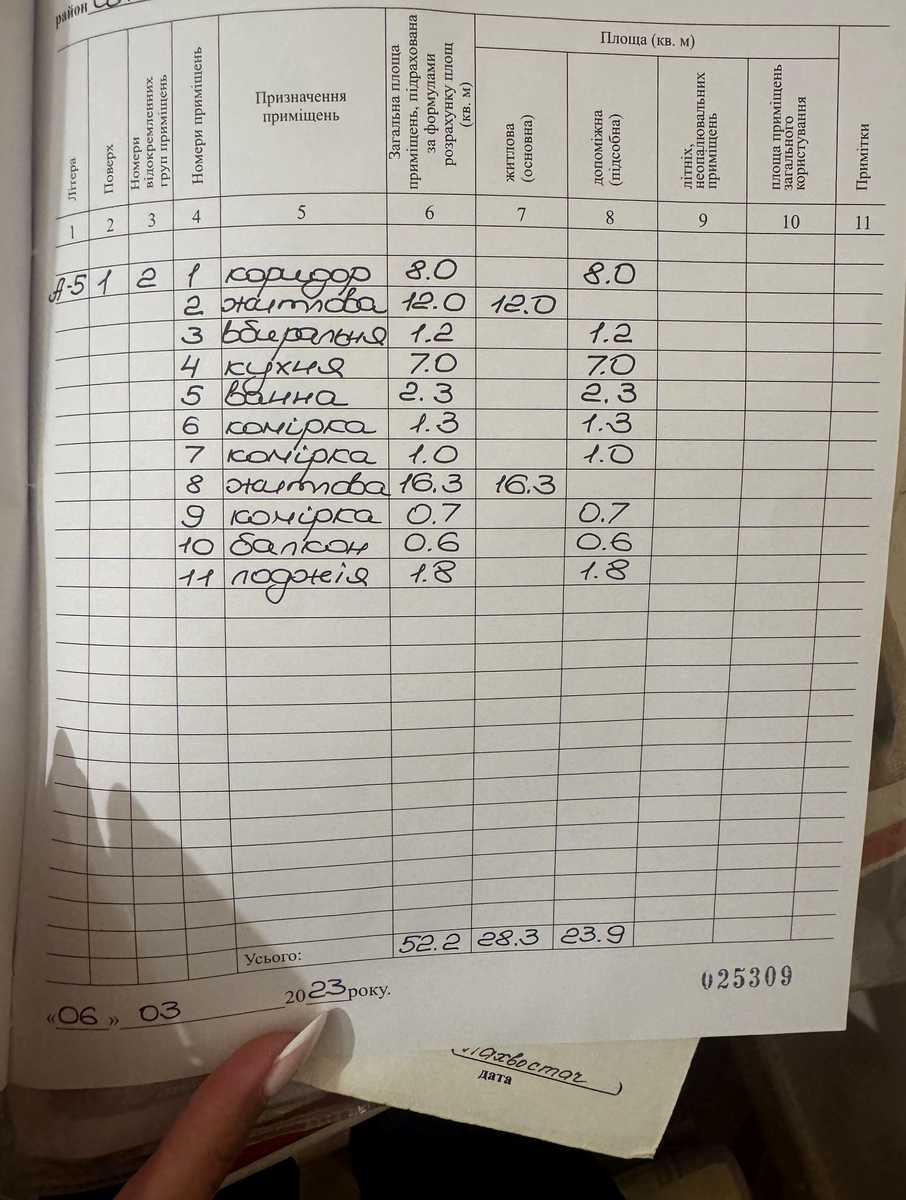 район
Літера
Поверх
Номери відокремленних груп приміщень
Номери приміщень
Призначення приміщень
Загальна площа приміщень, підрахована за формулами розрахунку площ (кв. м)
Площа (кв. м)
житлова (основна)
допоміжна (підсобна)
літніх, неопалювальних приміщень
площа приміщень загального користування
Примітки
1 2 3 4 5 6 7 8 9 10 11
А-5 1 2 1 коридор 8.0 8.0
2 житлова 12.0 12.0
3 вбиральня 1.2 1.2
4 кухня 7.0 7.0
5 ванна 2.3 2.3
6 комірка 1.3 1.3
7 комірка 1.0 1.0
8 житлова 16.3 16.3
9 комірка 0.7 0.7
10 балкон 0.6 0.6
11 лоджія 1.8 1.8
Усього: 52.2 28.3 23.9
«06» 03 2023 року.
025309
дата